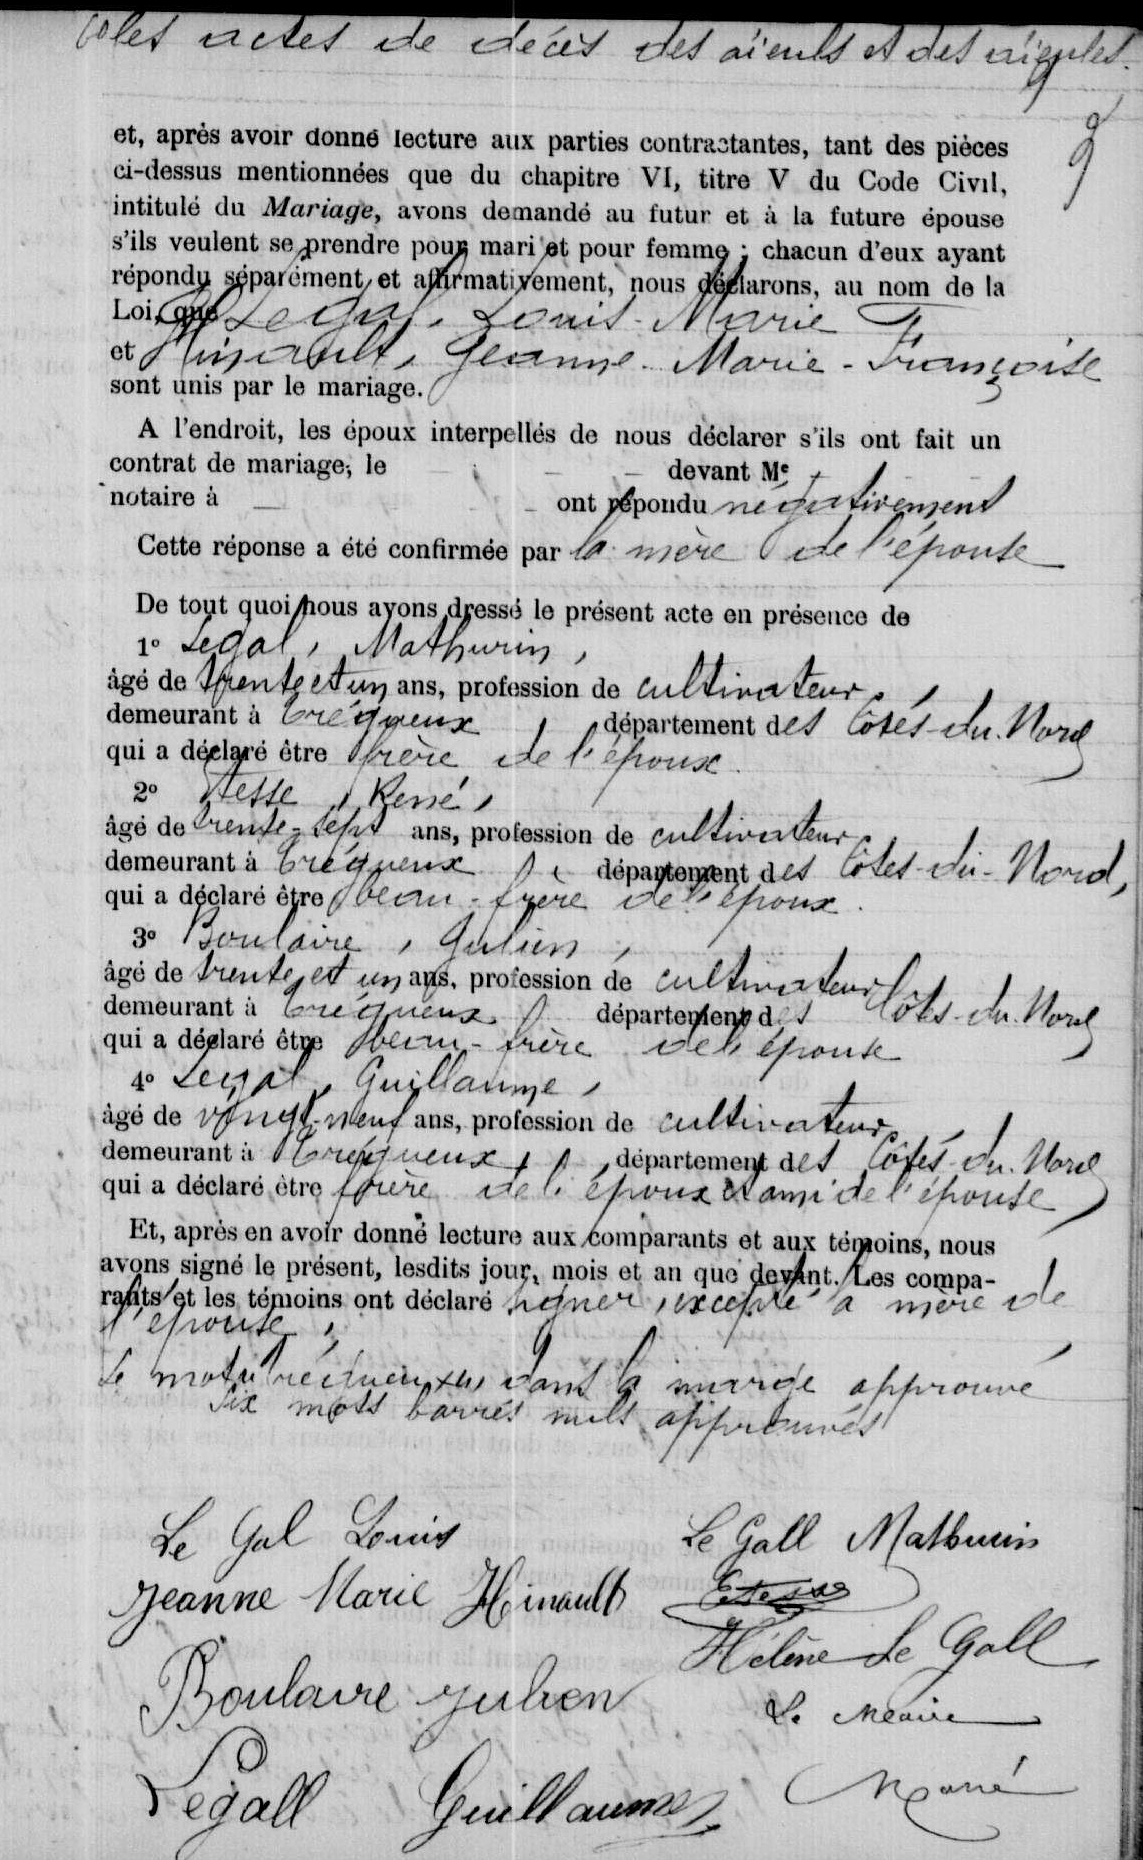 6° les actes de décès des aïeuls et des aïeules.
et, après avoir donné lecture aux parties contractantes, tant des pièces
ci-dessus mentionnées que du chapitre VI, titre V du Code Civil,
intitulé du Mariage, avons demandé au futur et à la future épouse
s'ils veulent se prendre pour mari et pour femme ; chacun d'eux ayant
répondu séparément et affirmativement, nous déclarons, au nom de la
Loi, que Legal, Louis-Marie
et Hinault, Jeanne-Marie-Françoise
sont unis par le mariage.
A l'endroit, les époux interpellés de nous déclarer s'ils ont fait un
contrat de mariage, le — devant Me
notaire à — ont répondu négativement
Cette réponse a été confirmée par la mère de l'épouse
De tout quoi nous avons dressé le présent acte en présence de
1° Legal, Mathurin,
âgé de trente et un ans, profession de cultivateur,
demeurant à Trégueux, département des Côtes-du-Nord
qui a déclaré être frère de l'époux.
2° Etesse, René,
âgé de trente-sept ans, profession de cultivateur
demeurant à Trégueux, département des Côtes-du-Nord,
qui a déclaré être beau-frère de l'époux.
3° Boulaire, Julien,
âgé de trente et un ans, profession de cultivateur
demeurant à Trégueux département des Côtes-du-Nord
qui a déclaré être beau-frère de l'épouse
4° Legal, Guillaume,
âgé de vingt-neuf ans, profession de cultivateur,
demeurant à Trégueux, département des Côtes-du-Nord
qui a déclaré être frère de l'époux et ami de l'épouse
Et, après en avoir donné lecture aux comparants et aux témoins, nous
avons signé le présent, lesdits jour, mois et an que devant. Les compa-
rants et les témoins ont déclaré signer, excepté la mère de
l'épouse,
Le mot Trégueux dans la marge approuvé
Six mots barrés nuls approuvés
Le Gal Louis Le Gall Mathurin
Jeanne Marie Hinault Etesse
Hélène Le Gall
Boulaire Julien Le Maire
Legall Guillaume